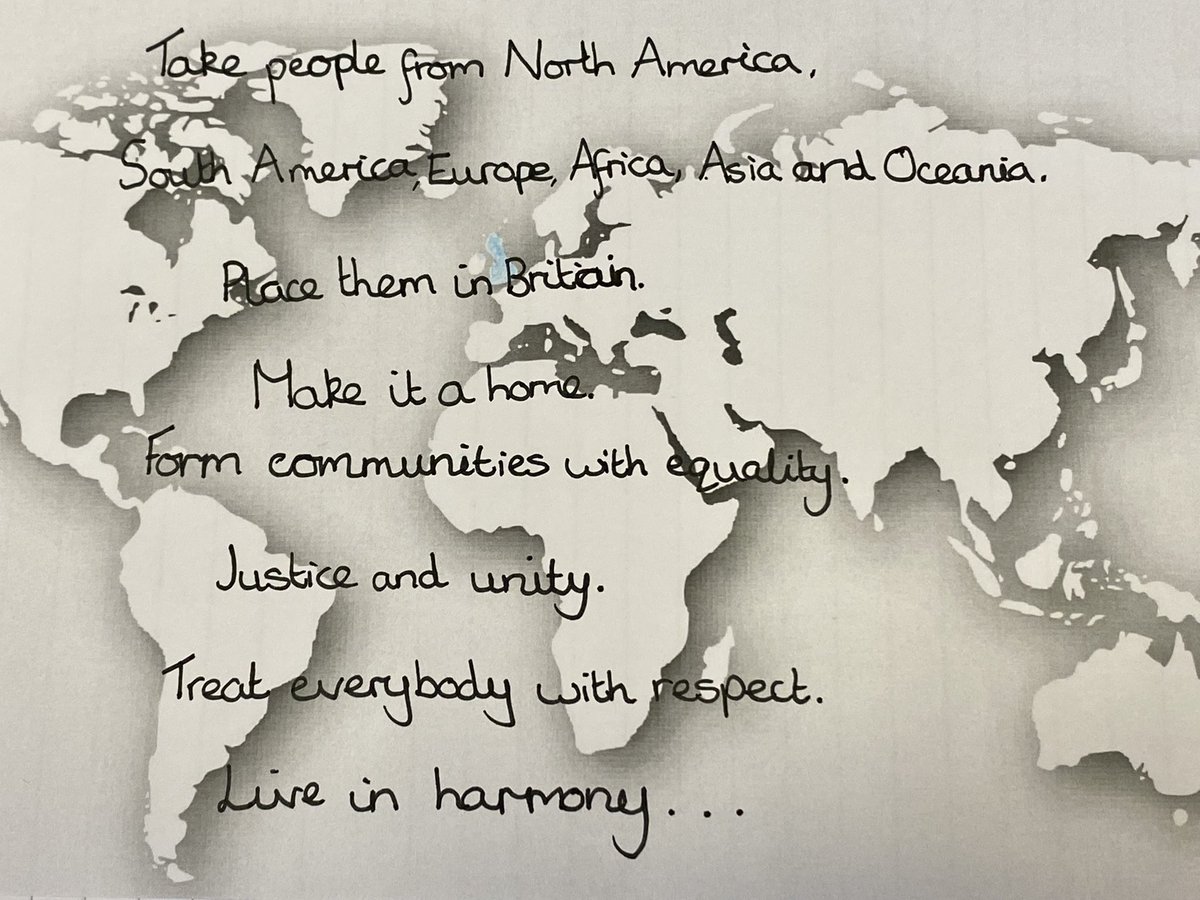 Take people from North America,
South America, Europe, Africa, Asia and Oceania.
Place them in Britiain.
Make it a home.
Form communities with equality.
Justice and unity.
Treat everybody with respect.
Live in harmony...